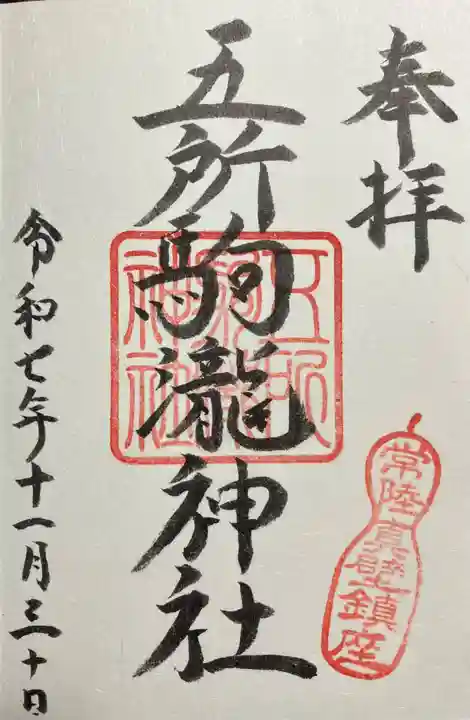 奉拝
五所駒瀧神社
五所駒瀧神社
常陸真壁鎮座
令和七年十一月三十日